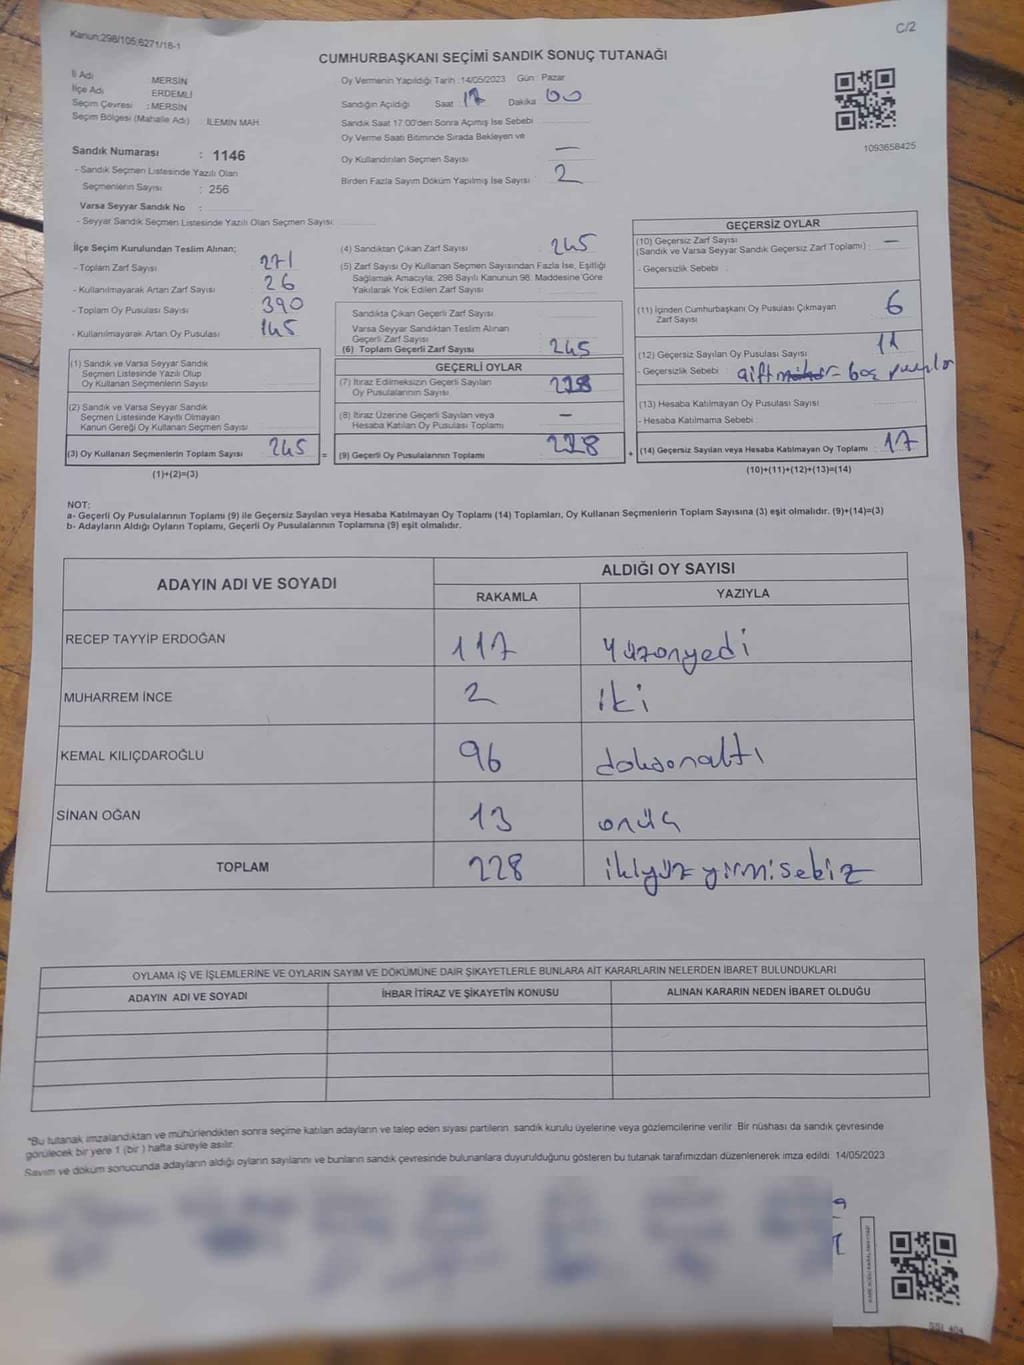 Kanun:298/105;6271/18-1
C/2
CUMHURBAŞKANI SEÇİMİ SANDIK SONUÇ TUTANAĞI
İl Adı MERSİN
İlçe Adı ERDEMLİ
Seçim Çevresi : MERSİN
Seçim Bölgesi (Mahalle Adı) : İLEMİN MAH.
Sandık Numarası : 1146
- Sandık Seçmen Listesinde Yazılı Olan
Seçmenlerin Sayısı : 256
Varsa Seyyar Sandık No :
- Seyyar Sandık Seçmen Listesinde Yazılı Olan Seçmen Sayısı:
Oy Vermenin Yapıldığı Tarih :14/05/2023 Gün : Pazar
Sandığın Açıldığı Saat 17 Dakika 00
Sandık Saat 17:00'den Sonra Açımış İse Sebebi
Oy Verme Saati Bitiminde Sırada Bekleyen ve
Oy Kullandırılan Seçmen Sayısı —
Birden Fazla Sayım Döküm Yapılmış İse Sayısı : 2
1093658425
İlçe Seçim Kurulundan Teslim Alınan;
- Toplam Zarf Sayısı 271
- Kullanılmayarak Artan Zarf Sayısı 26
- Toplam Oy Pusulası Sayısı 390
- Kullanılmayarak Artan Oy Pusulası 145
(1) Sandık ve Varsa Seyyar Sandık
Seçmen Listesinde Yazılı Olup
Oy Kullanan Seçmenlerin Sayısı
(2) Sandık ve Varsa Seyyar Sandık
Seçmen Listesinde Kayıtlı Olmayan
Kanun Gereği Oy Kullanan Seçmen Sayısı
(3) Oy Kullanan Seçmenlerin Toplam Sayısı 245 =
(1)+(2)=(3)
(4) Sandıktan Çıkan Zarf Sayısı : 245
(5) Zarf Sayısı Oy Kullanan Seçmen Sayısından Fazla İse, Eşitliği
Sağlamak Amacıyla; 298 Sayılı Kanunun 98. Maddesine Göre
Yakılarak Yok Edilen Zarf Sayısı
Sandıkta Çıkan Geçerli Zarf Sayısı
Varsa Seyyar Sandıktan Teslim Alınan
Geçerli Zarf Sayısı
(6) Toplam Geçerli Zarf Sayısı 245
GEÇERLİ OYLAR
(7) İtiraz Edilmeksizin Geçerli Sayılan
Oy Pusulalarının Sayısı 228
(8) İtiraz Üzerine Geçerli Sayılan veya
Hesaba Katılan Oy Pusulası Toplamı —
(9) Geçerli Oy Pusulalarının Toplamı 228 +
GEÇERSİZ OYLAR
(10) Geçersiz Zarf Sayısı
(Sandık ve Varsa Seyyar Sandık Geçersiz Zarf Toplamı) : —
- Geçersizlik Sebebi :
(11) İçinden Cumhurbaşkanı Oy Pusulası Çıkmayan
Zarf Sayısı 6
(12) Geçersiz Sayılan Oy Pusulası Sayısı 11
- Geçersizlik Sebebi : çift - boş
(13) Hesaba Katılmayan Oy Pusulası Sayısı
- Hesaba Katılmama Sebebi
(14) Geçersiz Sayılan veya Hesaba Katılmayan Oy Toplamı : 17
(10)+(11)+(12)+(13)=(14)
NOT:
a- Geçerli Oy Pusulalarının Toplamı (9) ile Geçersiz Sayılan veya Hesaba Katılmayan Oy Toplamı (14) Toplamları, Oy Kullanan Seçmenlerin Toplam Sayısına (3) eşit olmalıdır. (9)+(14)=(3)
b- Adayların Aldığı Oyların Toplamı, Geçerli Oy Pusulalarının Toplamına (9) eşit olmalıdır.
ADAYIN ADI VE SOYADI ALDIĞI OY SAYISI
RAKAMLA YAZIYLA
RECEP TAYYİP ERDOĞAN 117 yüzonyedi
MUHARREM İNCE 2 iki
KEMAL KILIÇDAROĞLU 96 doksonaltı
SİNAN OĞAN 13 onüç
TOPLAM 228 ikiyüz yirmisekiz
OYLAMA İŞ VE İŞLEMLERİNE VE OYLARIN SAYIM VE DÖKÜMÜNE DAİR ŞİKAYETLERLE BUNLARA AİT KARARLARIN NELERDEN İBARET BULUNDUKLARI
ADAYIN ADI VE SOYADI İHBAR İTİRAZ VE ŞİKAYETİN KONUSU ALINAN KARARIN NEDEN İBARET OLDUĞU
"Bu tutanak imzalandıktan ve mühürlendikten sonra seçime katılan adayların ve talep eden siyasi partilerin sandık kurulu üyelerine veya gözlemcilerine verilir. Bir nüshası da sandık çevresinde
görülecek bir yere 1 (bir) hafta süreyle asılır.
Sayım ve döküm sonucunda adayların aldığı oyların sayılarını ve bunların sandık çevresinde bulunanlara duyurulduğunu gösteren bu tutanak tarafımızdan düzenlenerek imza edildi. 14/05/2023